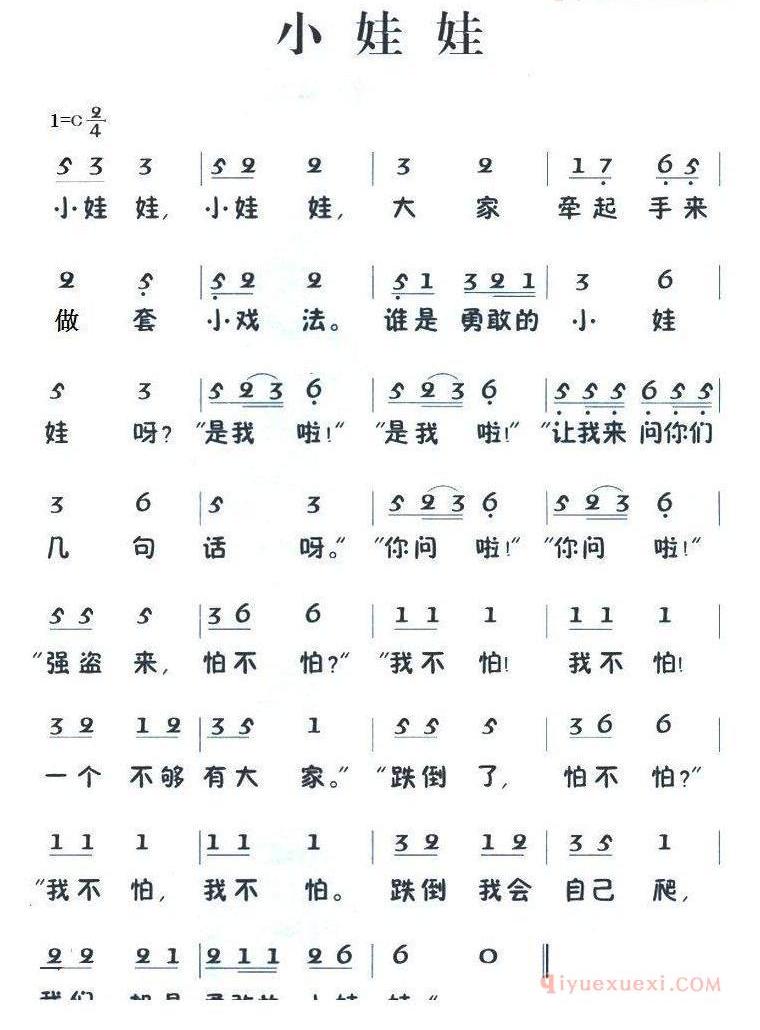 小娃娃
1=C 2/4
5 3 3 | 5 2 2 | 3 2 | 1 7 6 5 |
小娃 娃, 小娃 娃, 大 家 牵起 手来
2 5 | 5 2 2 | 5 1 3 2 1 | 3 6 |
做 套 小戏 法。 谁是 勇敢的 小 娃
5 3 | 5 2 3 6 | 5 2 3 6 | 5 5 5 6 5 5 |
娃 呀? "是我 啦!" "是我 啦!" "让我来 问你们
3 6 | 5 3 | 5 2 3 6 | 5 2 3 6 |
几 句 话 呀。" "你问 啦!" "你问 啦!"
5 5 5 | 3 6 6 | 1 1 1 | 1 1 1 |
"强盗 来, 怕不 怕?" "我不 怕! 我不 怕!
3 2 1 2 | 3 5 1 | 5 5 5 | 3 6 6 |
一个 不够 有大 家。" "跌倒 了, 怕不 怕?"
1 1 1 | 1 1 1 | 3 2 1 2 | 3 5 1 |
"我不 怕, 我不 怕。 跌倒 我会 自己 爬,
2 2 2 1 | 2 1 1 2 6 | 6 0 ‖
我们 都是 勇敢的 小娃 娃"
qiyuexuexi.COM